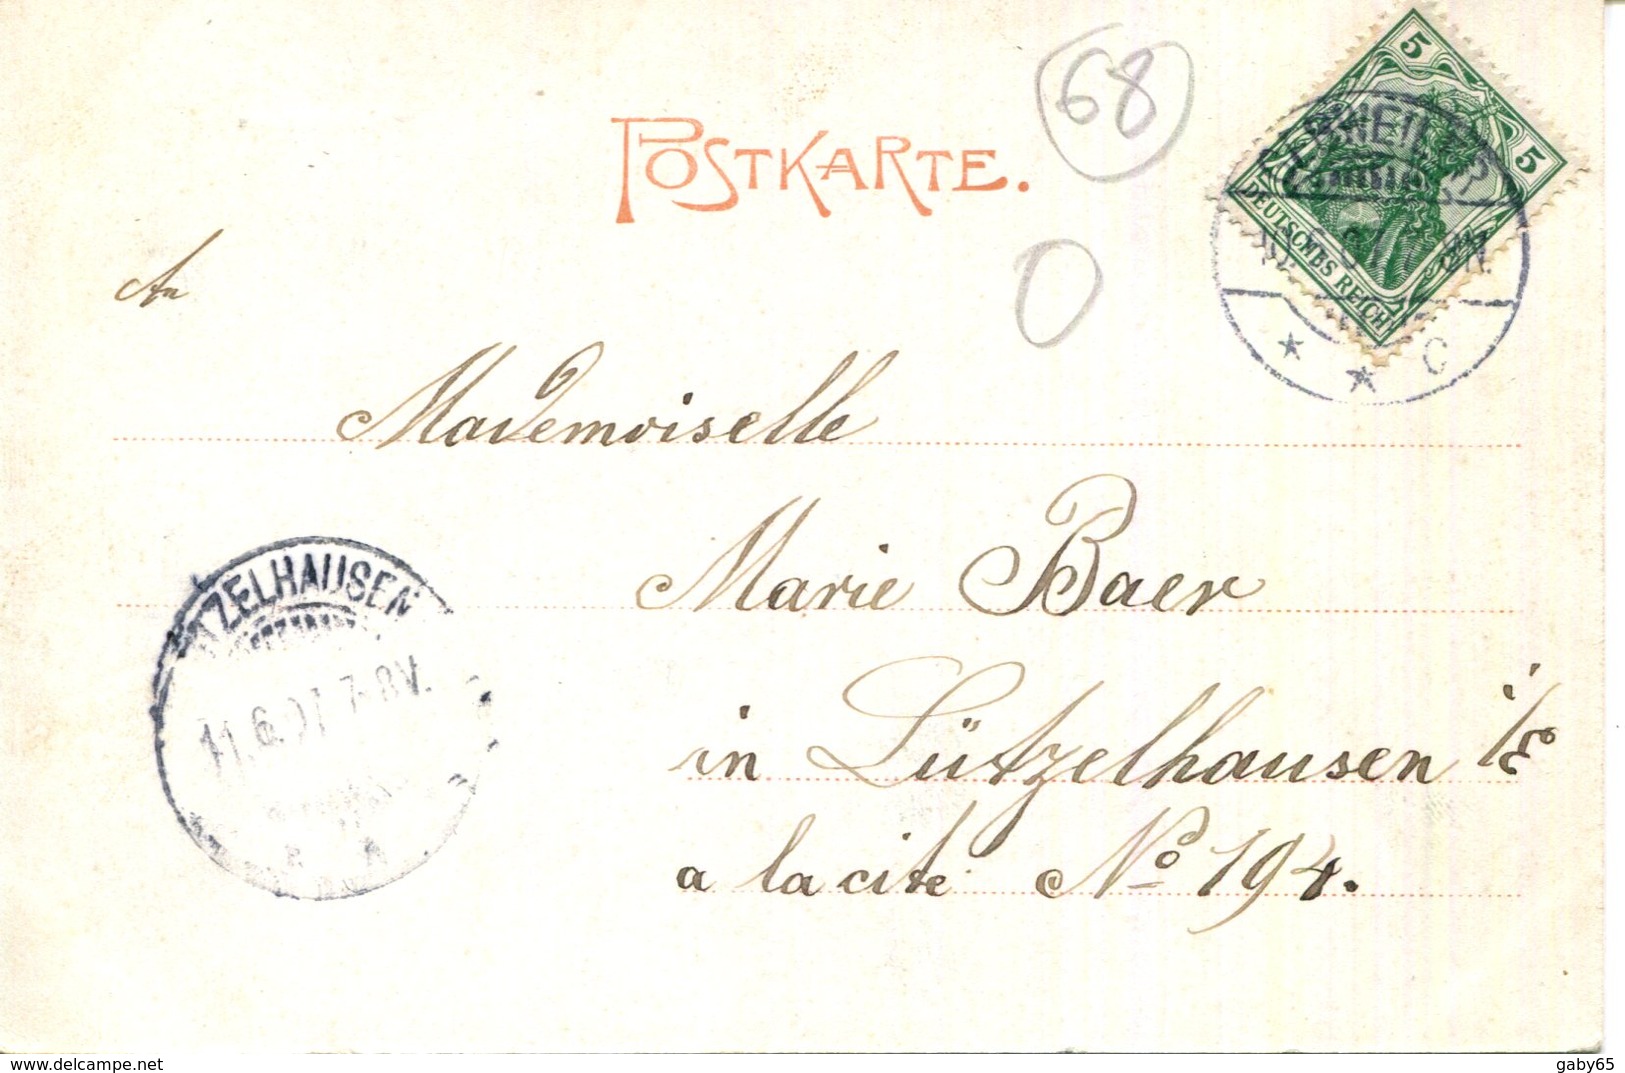 POSTKARTE.
68
5
5
DEUTSCHES REICH
An
0
C
Mademoiselle
Marie Baer
in Lützelhausen i/E
a la cité No 194.
TZELHAUSEN
11.6.07 7-8V.
delcampe.net
gaby65